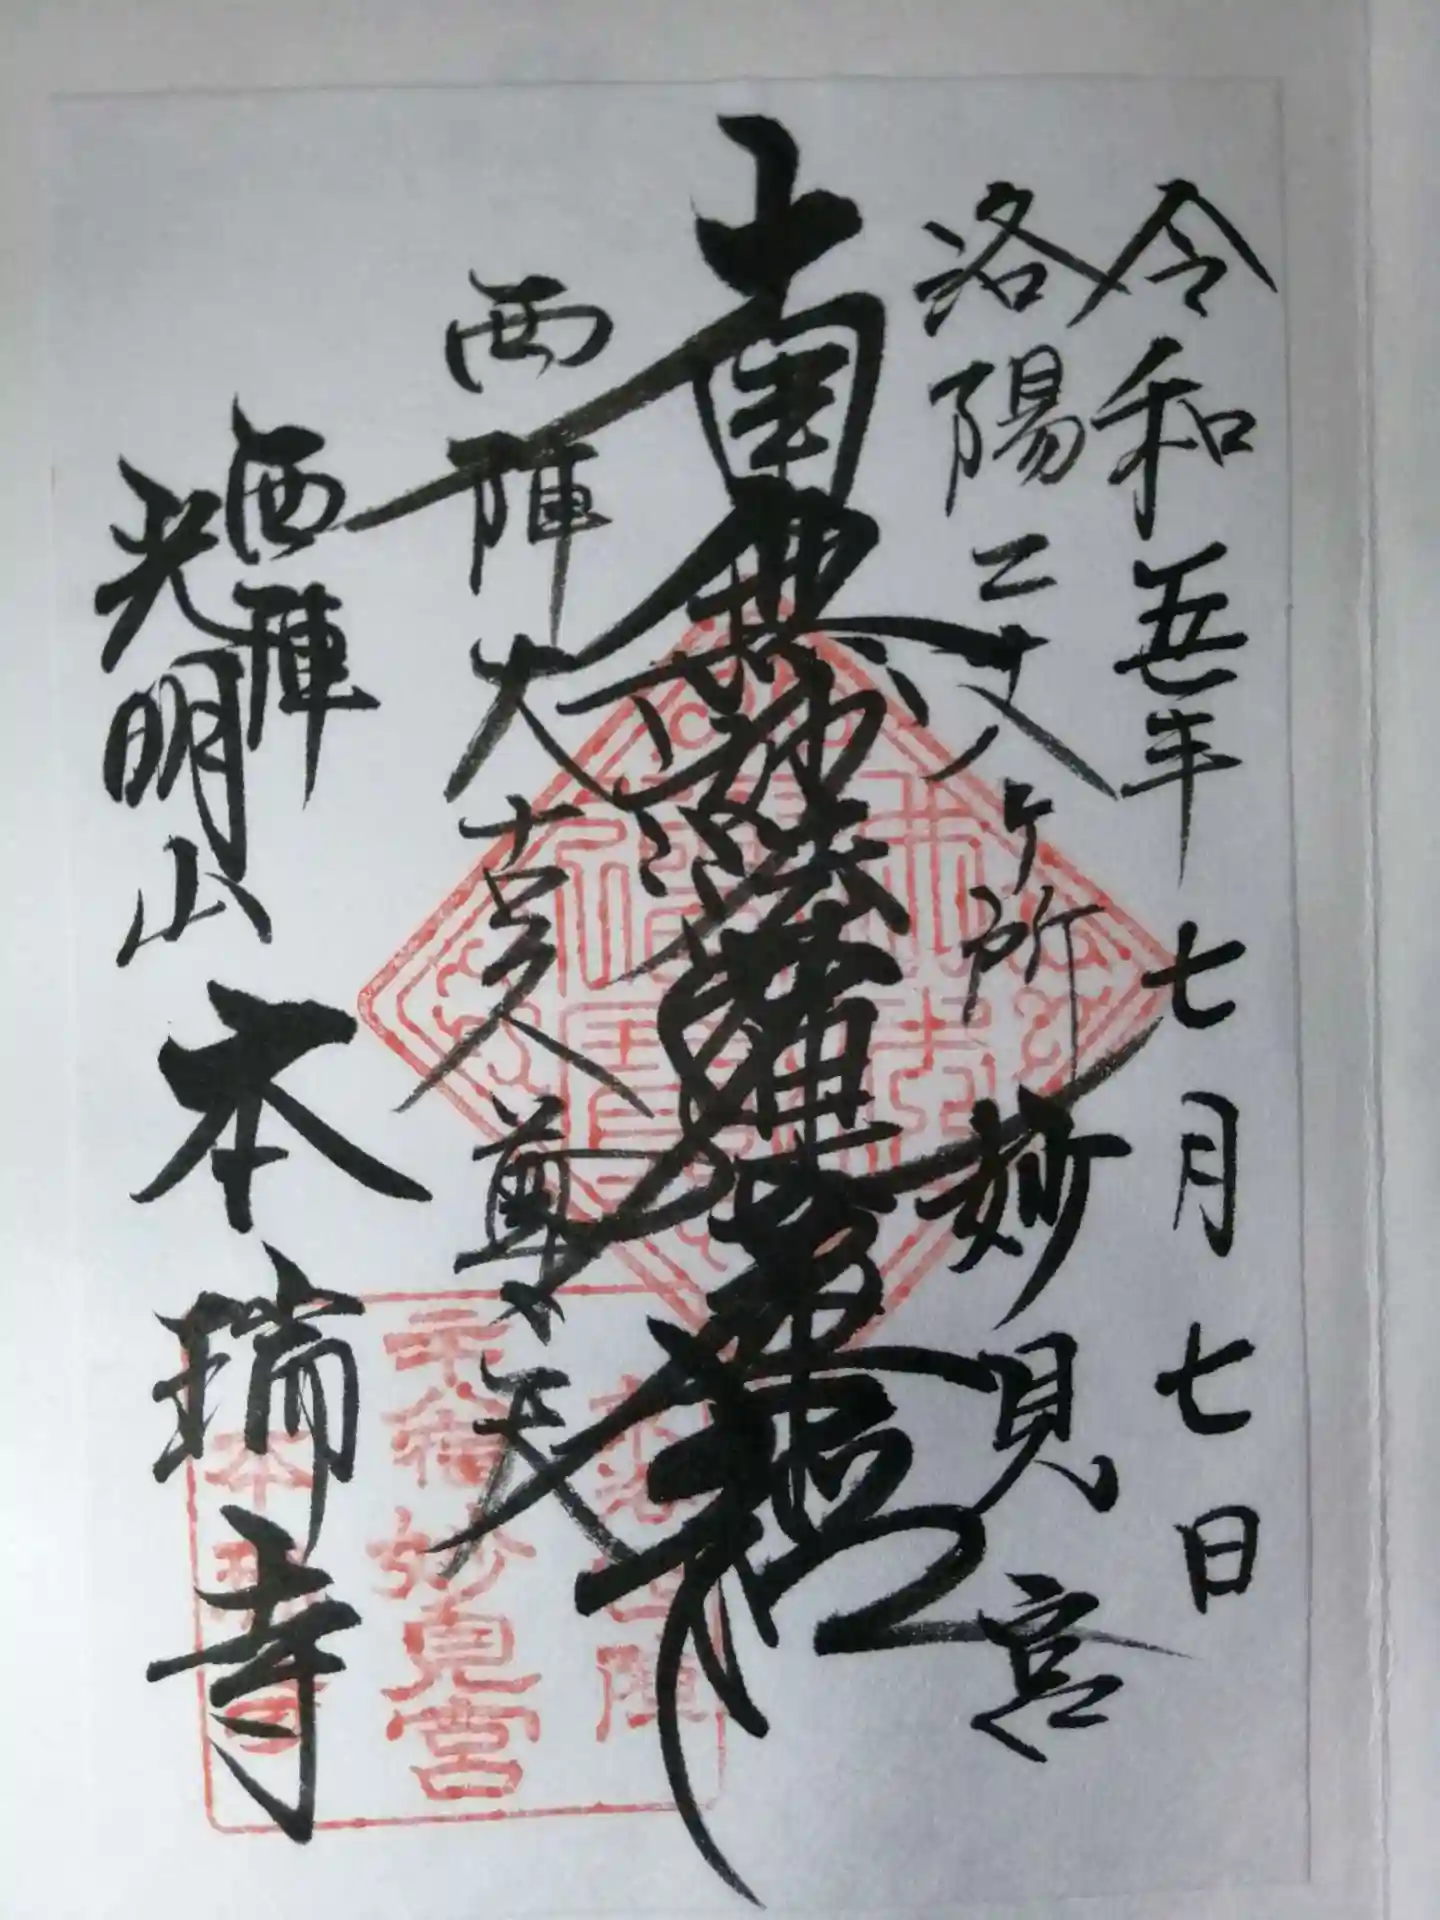 令和五年七月七日
洛陽二十八ヶ所妙見宮
南無妙法蓮華経
西陣大黄久尊天
西陣
光明山本瑞寺
妙見宮